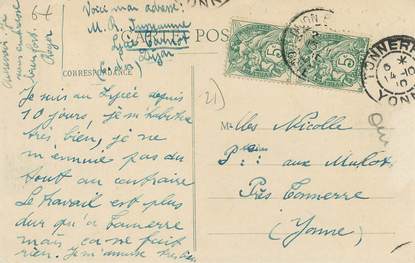 Voici mon adresse:
M. R. Jussaume
Lycée Carnot
Dijon
CARTE POSTALE
CORRESPONDANCE
Je suis au Lycée depuis
10 jours, je m'habitue
très bien, je ne
m'ennuie pas du
tout au contraire
Le travail est plus
dur qu'à Tonnerre
mais ça ne fait
rien. Je m'amuse très bien
Roger
21)
5 5
TONNERRE
14-10
YONNE
Melles Nicolle
aux Mulots
Près Tonnerre
(Yonne)